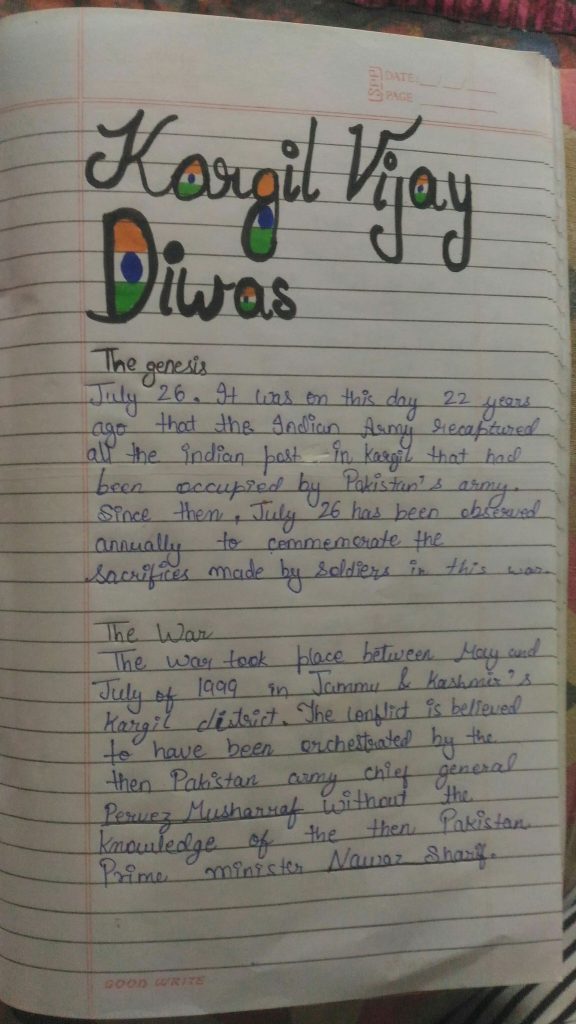 SPP DATE: __/__/__
PAGE
Kargil Vijay
Diwas
The genesis
July 26. It was on this day 22 years
ago that the Indian Army recaptured
all the indian post in Kargil that had
been occupied by Pakistan's army.
Since then, July 26 has been observed
annually to commemorate the
sacrifices made by soldiers in this war.
The War
The war took place between May and
July of 1999 in Jammu & Kashmir's
Kargil district. The conflict is believed
to have been orchestrated by the
then Pakistan army chief general
Pervez Musharraf without the
knowledge of the then Pakistan
Prime minister Nawaz Sharif.
GOOD WRITE